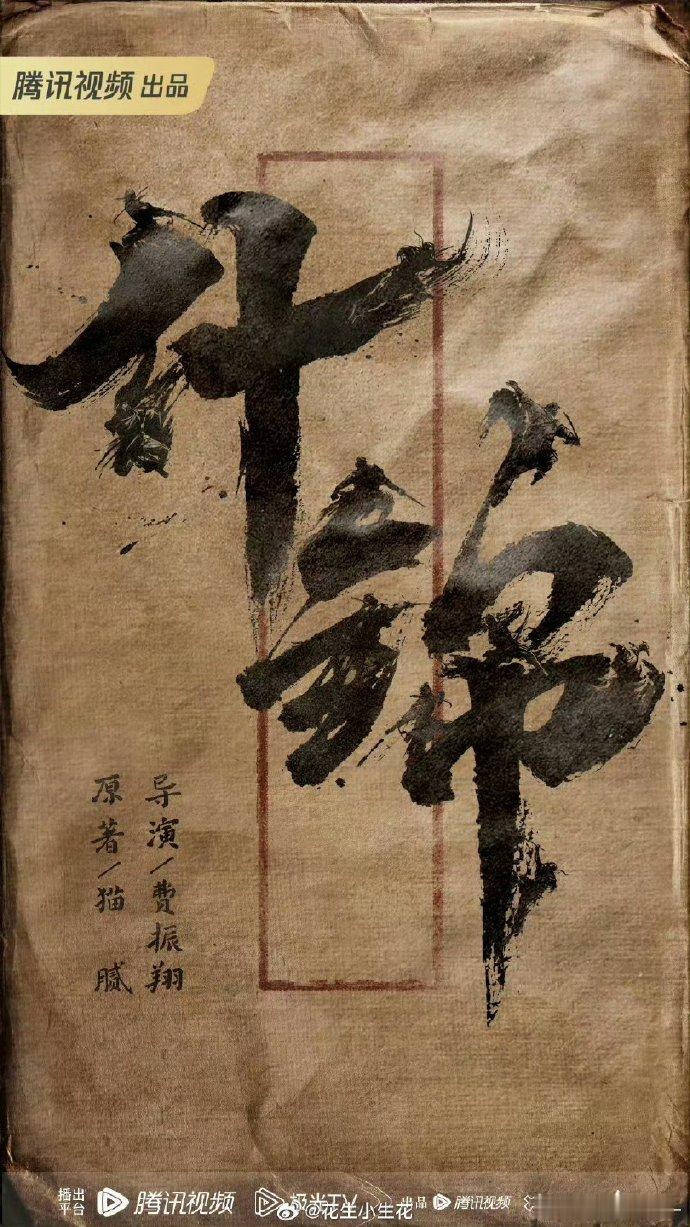 腾讯视频 出品
什錦
导演/費振翔
原著/猫腻
播出平台 腾讯视频 极光TV 出品 腾讯视频
@花生小生花